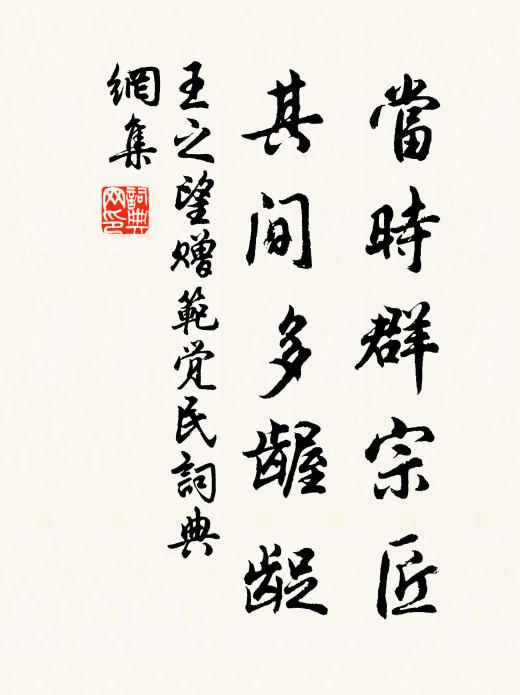 當時群宗匠
其間多齷齪
王之望贈範覚民詞典
網集
詞典网印